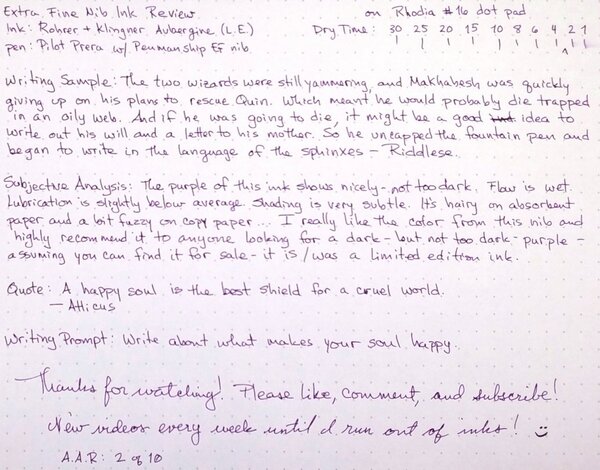 Extra Fine Nib Ink Review on Rhodia #16 dot pad
Ink: Rohrer & Klingner Aubergine (L.E.) Dry Time: 30 25 20 15 10 8 6 4 2 1
pen: Pilot Prera w/ Penmanship EF nib
Writing Sample: The two wizards were still yammering, and Makhabesh was quickly
giving up on his plans to rescue Quin. Which meant he would probably die trapped
in an oily web. And if he was going to die, it might be a good idea to
write out his will and a letter to his mother. So he uncapped the fountain pen and
began to write in the language of the sphinxes - Riddlese.
Subjective Analysis: The purple of this ink shows nicely - not too dark. Flow is wet.
Lubrication is slightly below average. Shading is very subtle. It's hairy on absorbent
paper and a bit fuzzy on copy paper... I really like the color from this nib and
highly recommend it to anyone looking for a dark - but not too dark - purple -
assuming you can find it for sale - it is/was a limited edition ink.
Quote: A happy soul is the best shield for a cruel world.
- Atticus
Writing Prompt: Write about what makes your soul happy.
Thanks for watching! Please like, comment, and subscribe!
New videos every week until I run out of inks! :)
A.A.R: 2 of 10